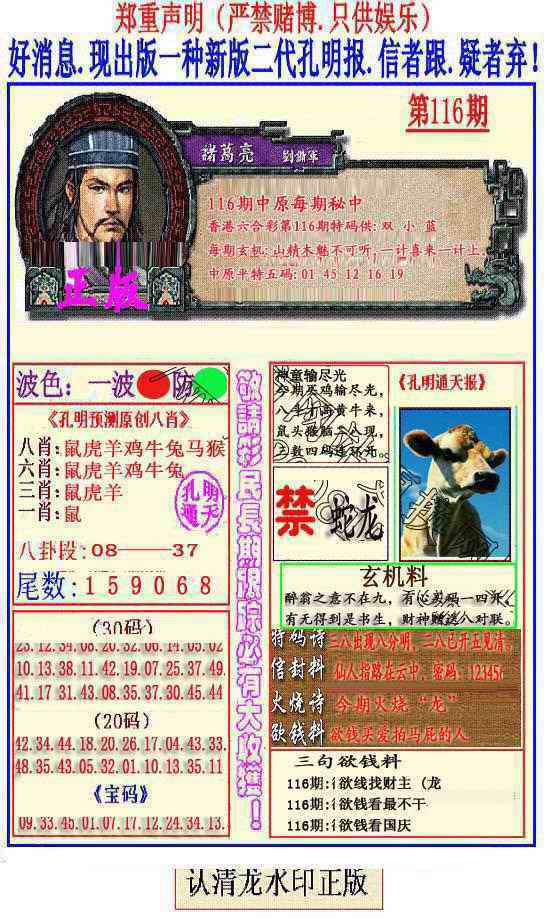 郑重声明（严禁赌博.只供娱乐）
好消息.现出版一种新版二代孔明报.信者跟.疑者弃!
第116期
諸葛亮
116期中原每期秘中
香港六合彩第116期特码供: 双 小 蓝
每期玄机: 山精木魅不可听, 一计喜来一计上.
中原平特五码: 01 45 12 16 19
正版
波色: 一波 防
《孔明预测原创八肖》
八肖: 鼠虎羊鸡牛兔马猴
六肖: 鼠虎羊鸡牛兔
三肖: 鼠虎羊
一肖: 鼠
孔明通天
八卦段: 08——37
尾数: 1 5 9 0 6 8
(30码)
23.12.34.08.20.32.06.14.05.02
10.13.38.11.42.19.07.25.37.49.
41.17.31.43.08.35.37.30.45.44
(20码)
42.34.44.18.20.26.17.04.43.33.
48.35.43.05.32.01.10.13.35.11
《宝码》
09.33.45.01.07.17.12.24.34.13.
敬請彩民長期跟踪必有大收獲!
神童输尽光
今期买鸡输尽光,
《孔明通天报》
禁
蛇龙
玄机料
醉翁之意不在九,
有无得到是书生,
特码诗 三八出现八分明, 二八已开五见清.
信封料 仙人指路在云中, 密码: 123456
火烧诗 今期火烧“龙”
欲钱料 欲钱买爱拍马屁的人
三句欲钱料
116期:欲线找财主（龙
116期:欲钱看最不干
116期:欲钱看国庆
认清龙水印正版